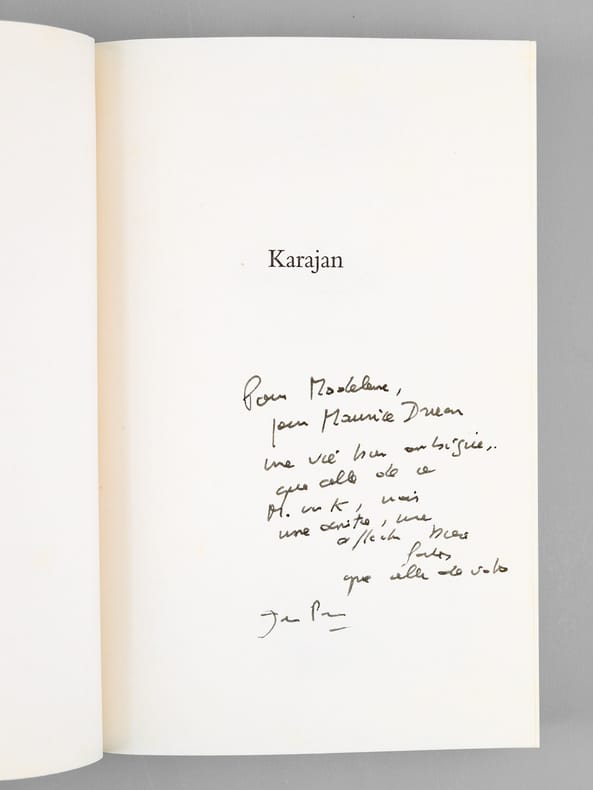 Karajan
Pour Madeleine,
pour Maurice Druon
une vie bien ambiguë,
que celle de ce
M. von K, mais
une amitié, une
que celle de votre
Jean